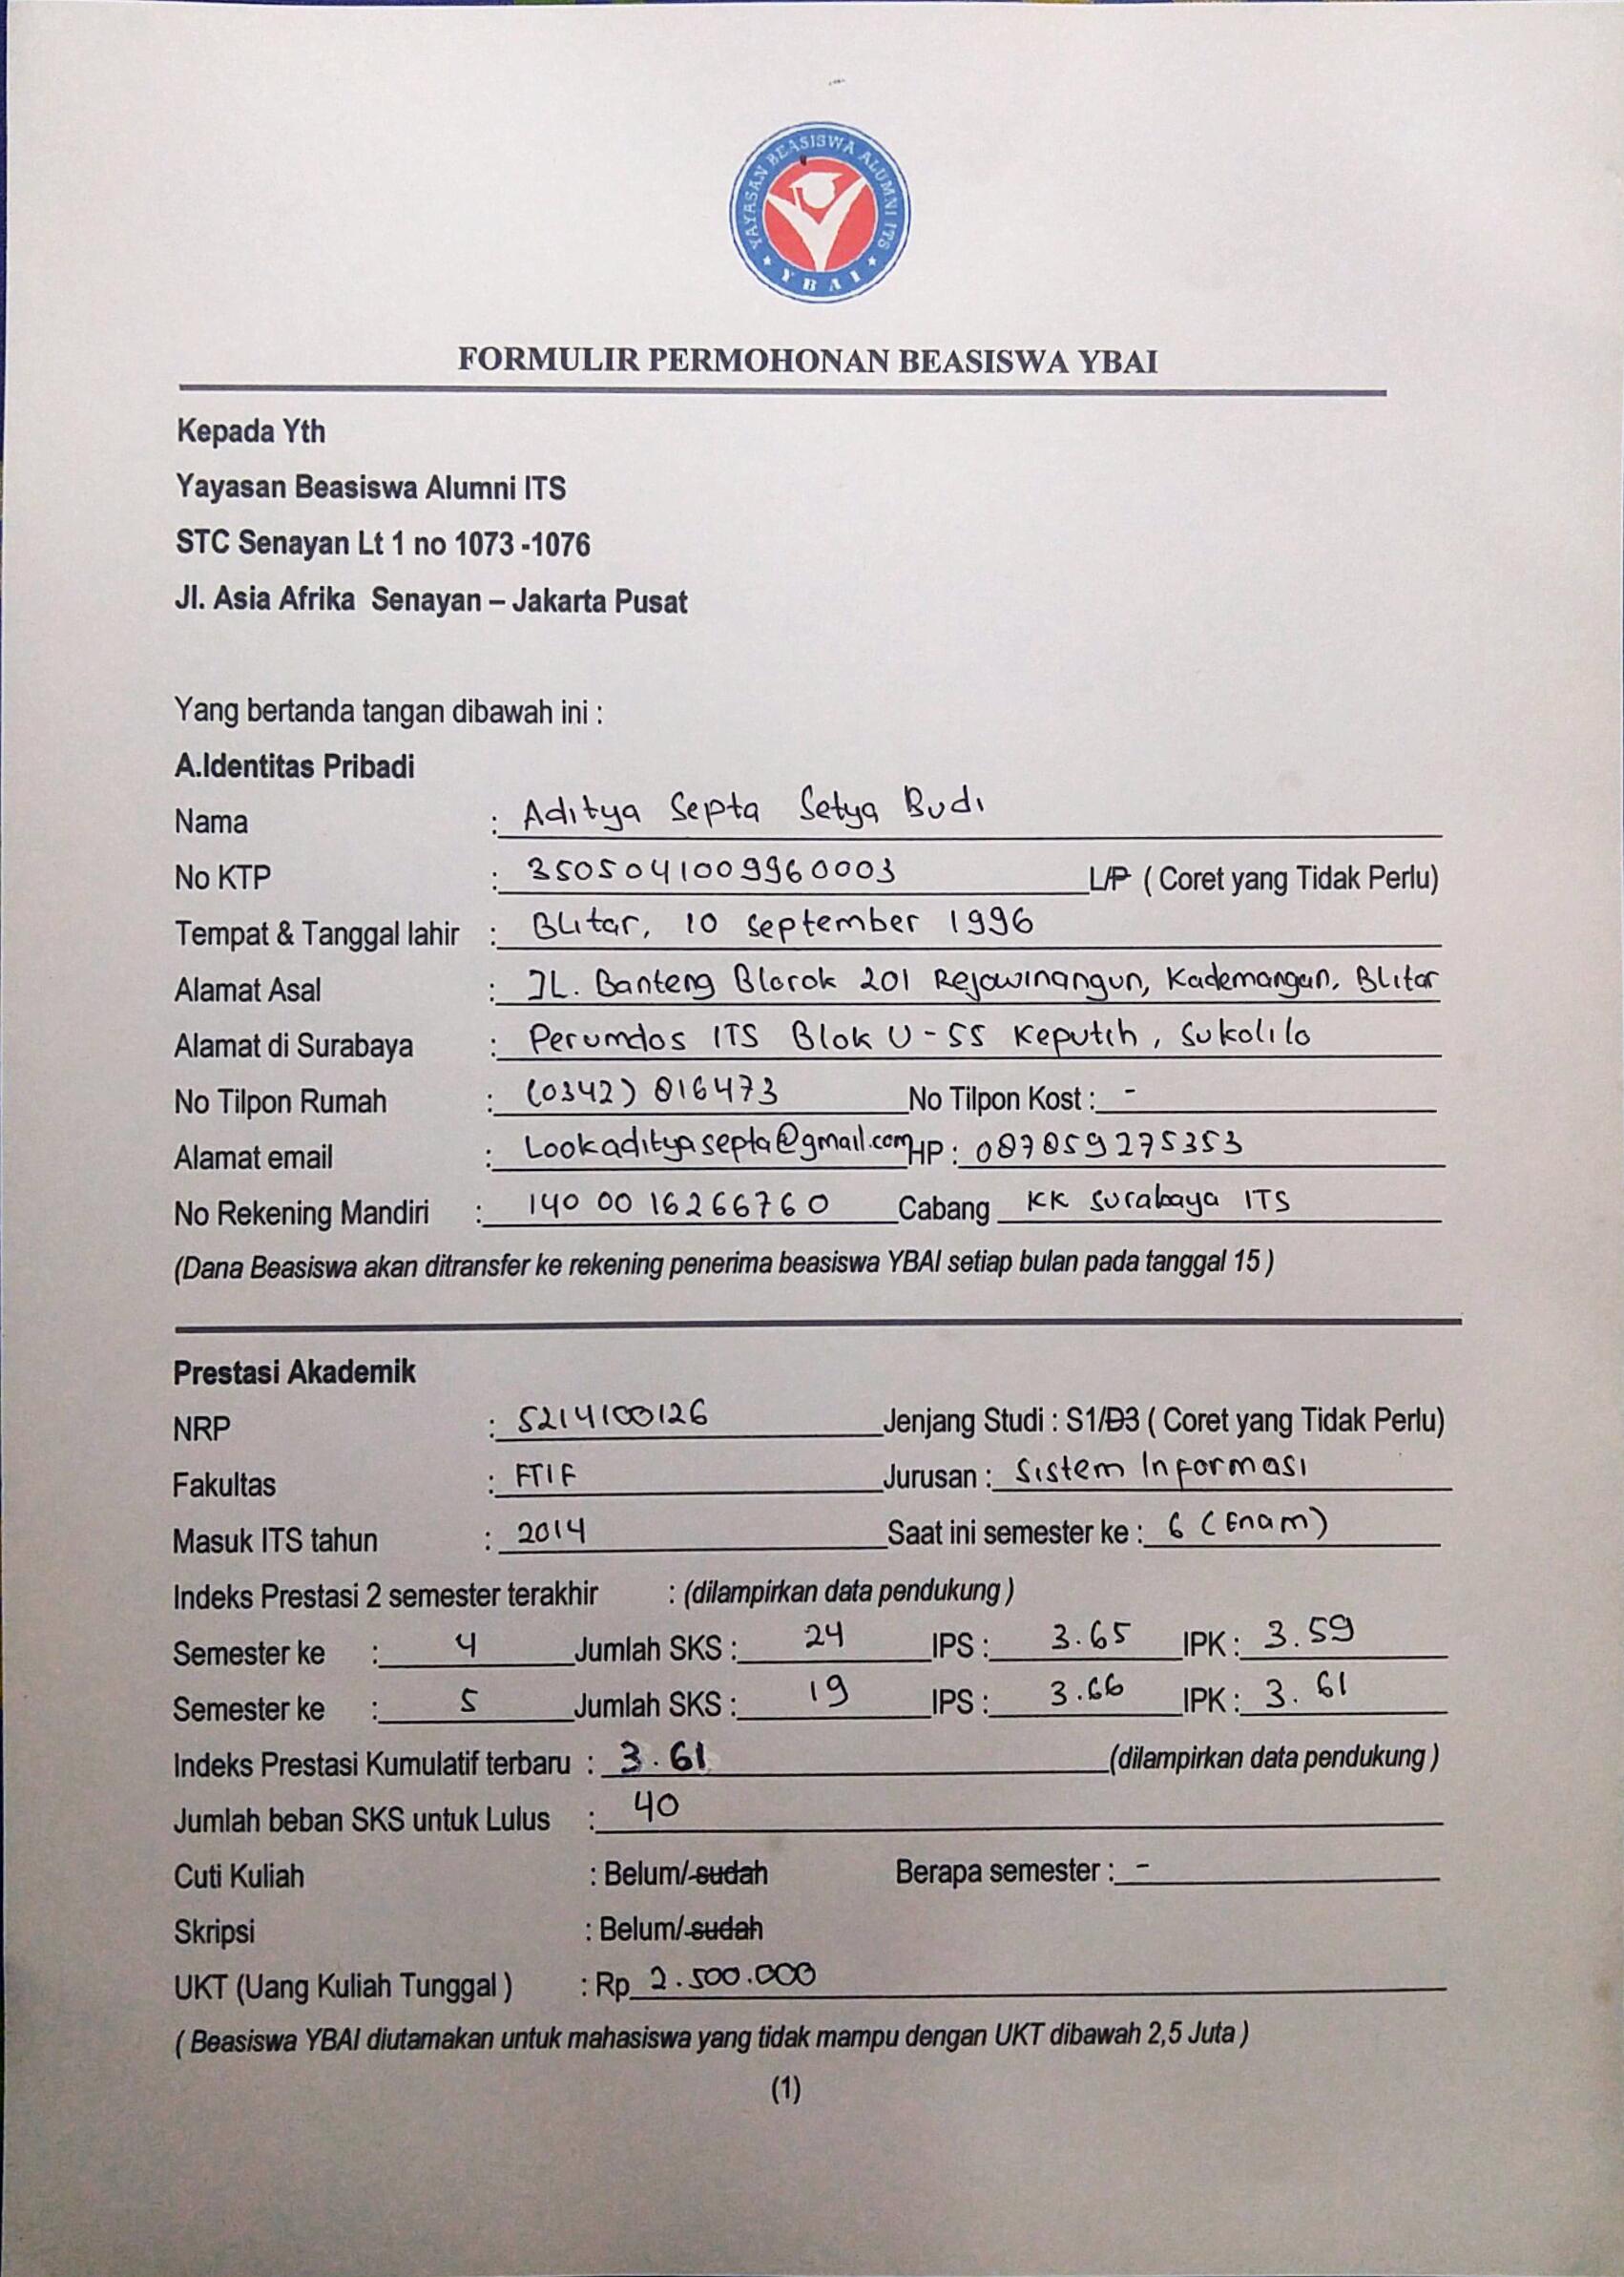 YAYASAN BEASISWA ALUMNI ITS
YBAI
FORMULIR PERMOHONAN BEASISWA YBAI
Kepada Yth
Yayasan Beasiswa Alumni ITS
STC Senayan Lt 1 no 1073 -1076
Jl. Asia Afrika Senayan – Jakarta Pusat
Yang bertanda tangan dibawah ini :
A.Identitas Pribadi
Nama : Aditya Septa Setya Budi
No KTP : 3505041009960003 L/P ( Coret yang Tidak Perlu)
Tempat & Tanggal lahir : Blitar, 10 September 1996
Alamat Asal : JL. Banteng Blorok 201 Rejowinangun, Kademangan, Blitar
Alamat di Surabaya : Perumdos ITS Blok U-55 Keputih, Sukolilo
No Tilpon Rumah : (0342) 816473 No Tilpon Kost : -
Alamat email : Lookadityasepta@gmail.com HP : 087859275353
No Rekening Mandiri : 140 00 16266760 Cabang KK Surabaya ITS
(Dana Beasiswa akan ditransfer ke rekening penerima beasiswa YBAI setiap bulan pada tanggal 15 )
Prestasi Akademik
NRP : 5214100126 Jenjang Studi : S1/D3 ( Coret yang Tidak Perlu)
Fakultas : FTIF Jurusan : Sistem Informasi
Masuk ITS tahun : 2014 Saat ini semester ke : 6 (Enam)
Indeks Prestasi 2 semester terakhir : (dilampirkan data pendukung )
Semester ke : 4 Jumlah SKS : 24 IPS : 3.65 IPK : 3.59
Semester ke : 5 Jumlah SKS : 19 IPS : 3.66 IPK : 3.61
Indeks Prestasi Kumulatif terbaru : 3.61 (dilampirkan data pendukung )
Jumlah beban SKS untuk Lulus : 40
Cuti Kuliah : Belum/sudah Berapa semester : -
Skripsi : Belum/sudah
UKT (Uang Kuliah Tunggal ) : Rp 2.500.000
( Beasiswa YBAI diutamakan untuk mahasiswa yang tidak mampu dengan UKT dibawah 2,5 Juta )
(1)